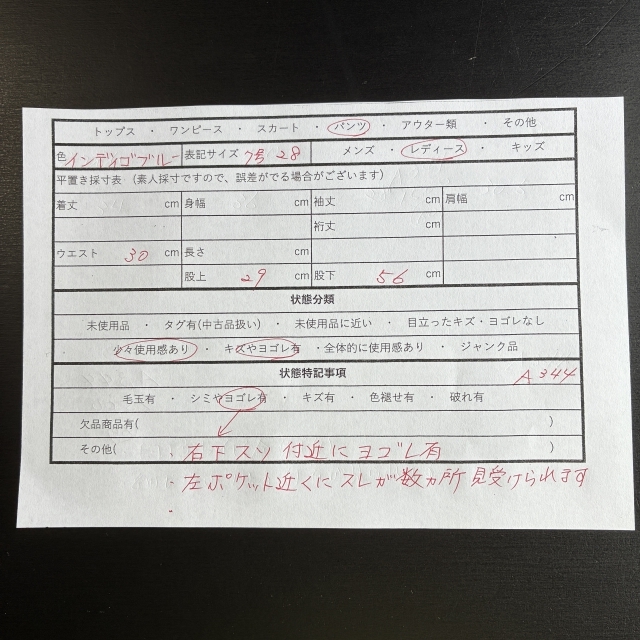 トップス ・ ワンピース ・ スカート ・ パンツ ・ アウター類 ・ その他
色 インディゴブルー 表記サイズ 7号 28 メンズ ・ レディース ・ キッズ
平置き採寸表 （素人採寸ですので、誤差がでる場合がございます）
着丈 cm 身幅 cm 袖丈 cm 肩幅 cm
裄丈 cm
ウエスト 30 cm 長さ cm
股上 29 cm 股下 56 cm
状態分類
未使用品 ・ タグ有(中古品扱い) ・ 未使用品に近い ・ 目立ったキズ・ヨゴレなし
少々使用感あり ・ キズやヨゴレ有 ・全体的に使用感あり ・ ジャンク品
状態特記事項 A344
毛玉有 ・ シミやヨゴレ有 ・ キズ有 ・ 色褪せ有 ・ 破れ有
欠品商品有( )
その他( ・右下スソ付近にヨゴレ有 )
・左ポケット近くにスレが数ヵ所見受けられます